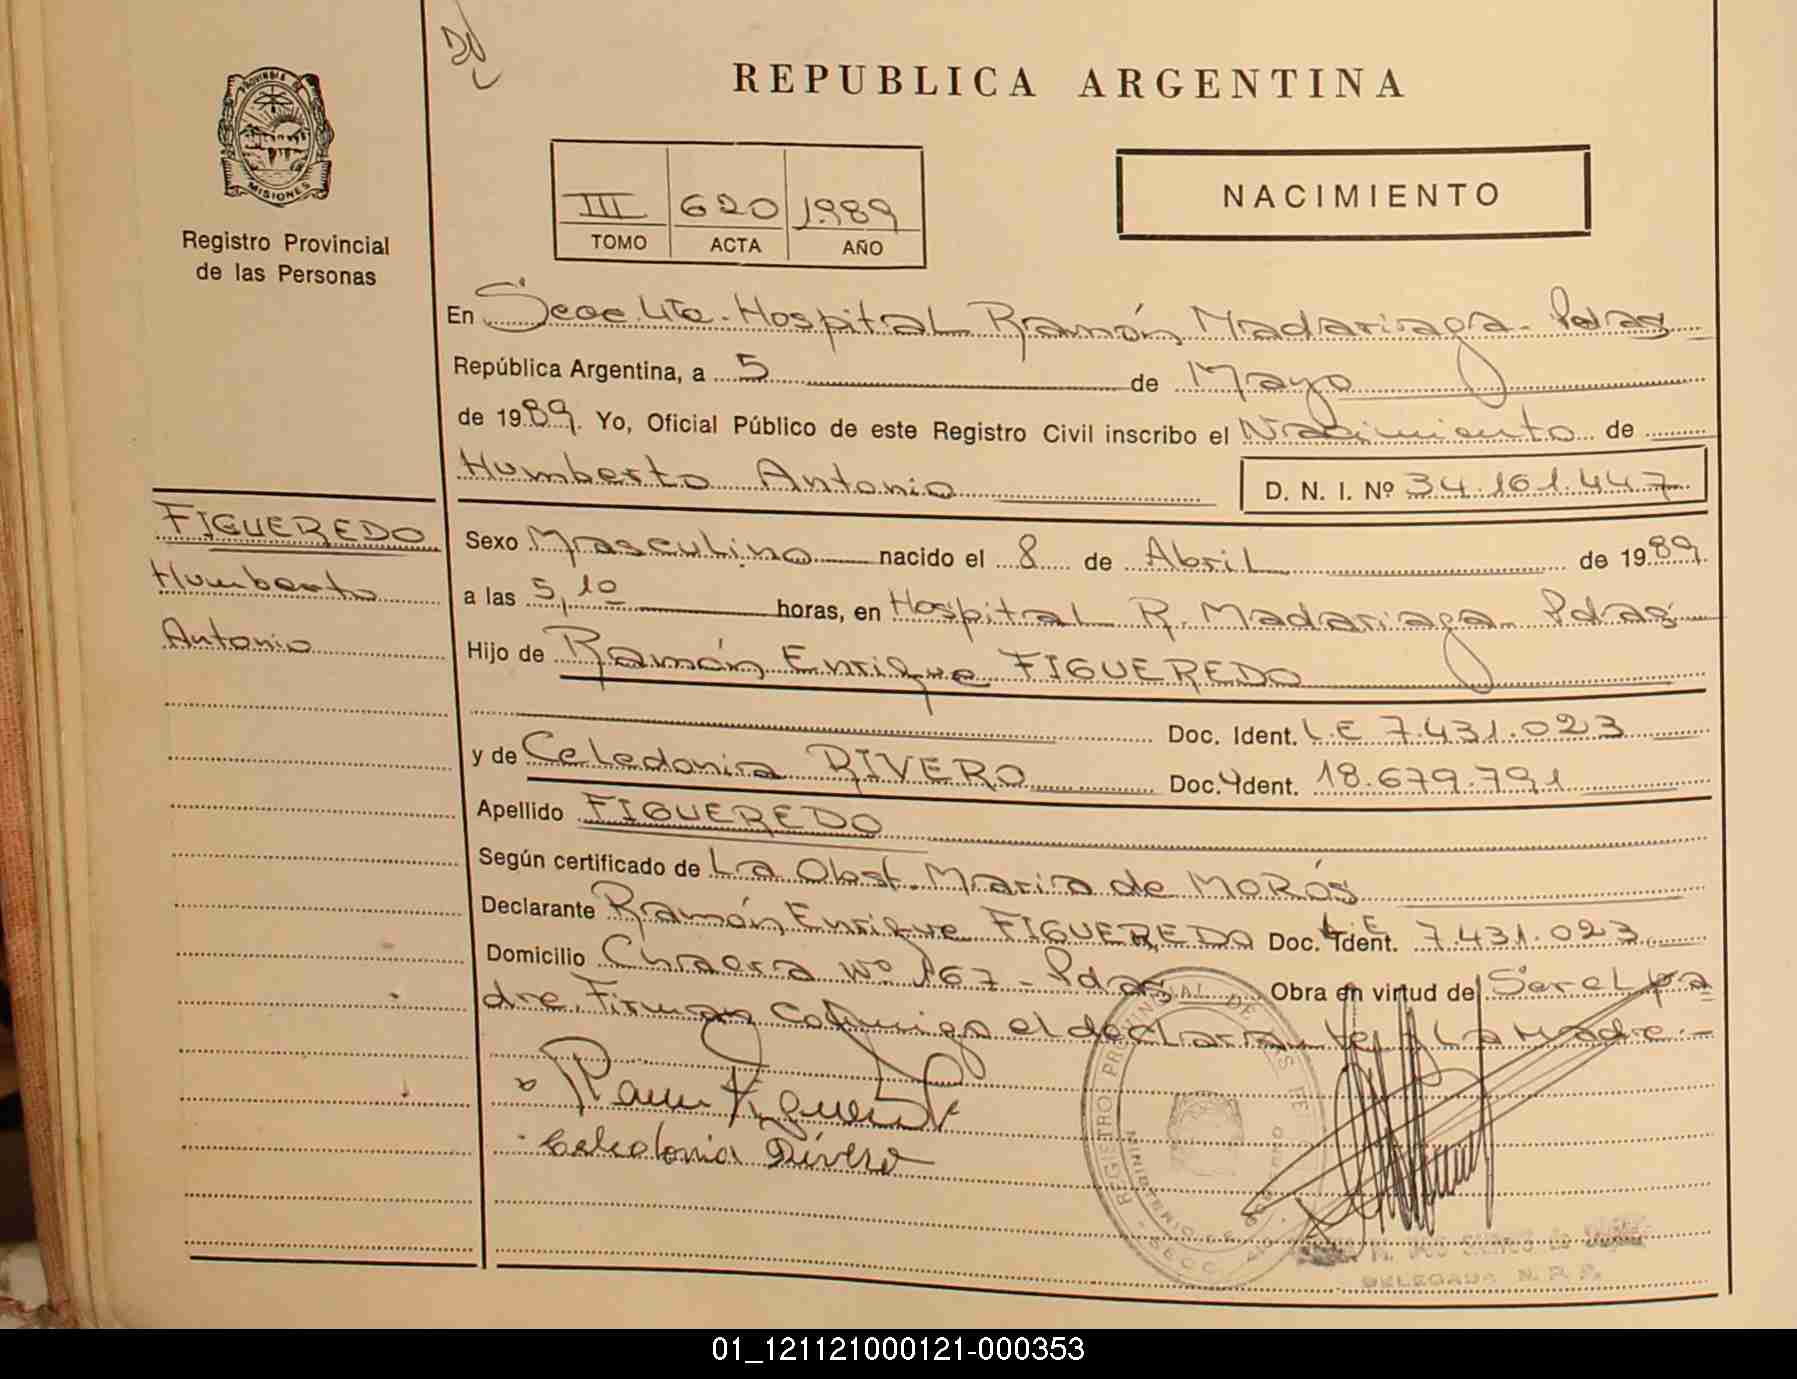 REPUBLICA ARGENTINA
PROVINCIA DE
MISIONES
Registro Provincial
de las Personas
III 620 1989
TOMO ACTA AÑO
NACIMIENTO
En Secc 4ta. Hospital Ramón Madariaga - Pdas
República Argentina, a 5 de Mayo
de 1989. Yo, Oficial Público de este Registro Civil inscribo el Nacimiento de
Humberto Antonio D. N. I. Nº 34.161.447
FIGUEREDO
Humberto
Antonio
Sexo Masculino nacido el 8 de Abril de 1989.
a las 5,10 horas, en Hospital R. Madariaga - Pdas
Hijo de Ramón Enrique FIGUEREDO
Doc. Ident. L.E 7.431.023
y de Celedonia RIVERO Doc. Ident. 18.679.791
Apellido FIGUEREDO
Según certificado de La Obst. Maria de MoRós
Declarante Ramón Enrique FIGUEREDO Doc. Ident. L.E 7.431.023
Domicilio Chacra Nº 167 - Pdas Obra en virtud de Ser el pa
dre. Firman conmigo el declarante y La Madre.-
Ramon Figueredo
Celedonia Rivero
REGISTRO PROVINCIAL DE LAS PERSONAS
MINISTERIO DE GOBIERNO
DELEGADA R. P. P.
01_121121000121-000353